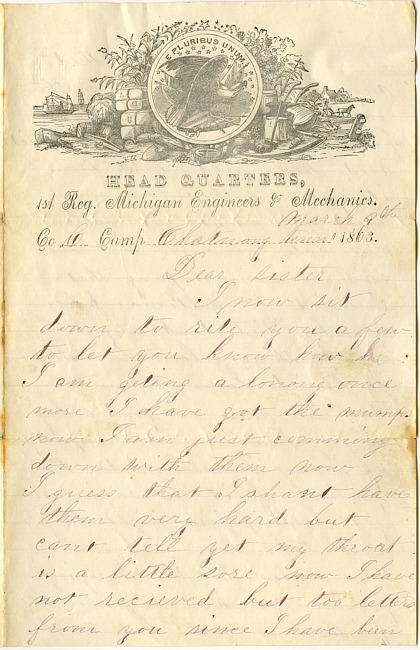 E PLURIBUS UNUM
HEAD QUARTERS,
1st Reg. Michigan Engineers & Mechanics.
March 9th
Co Camp 1863.
Dear Sister
I now sit
down to rite you a few
to let you know how
I am geting a lonong once
more I have got the mumps
now I am just comming
down with them now
I guess that I shant have
them very hard but
cant tell yet my throat
is a little sore now I have
not recieved but too letters
from you since I have bun